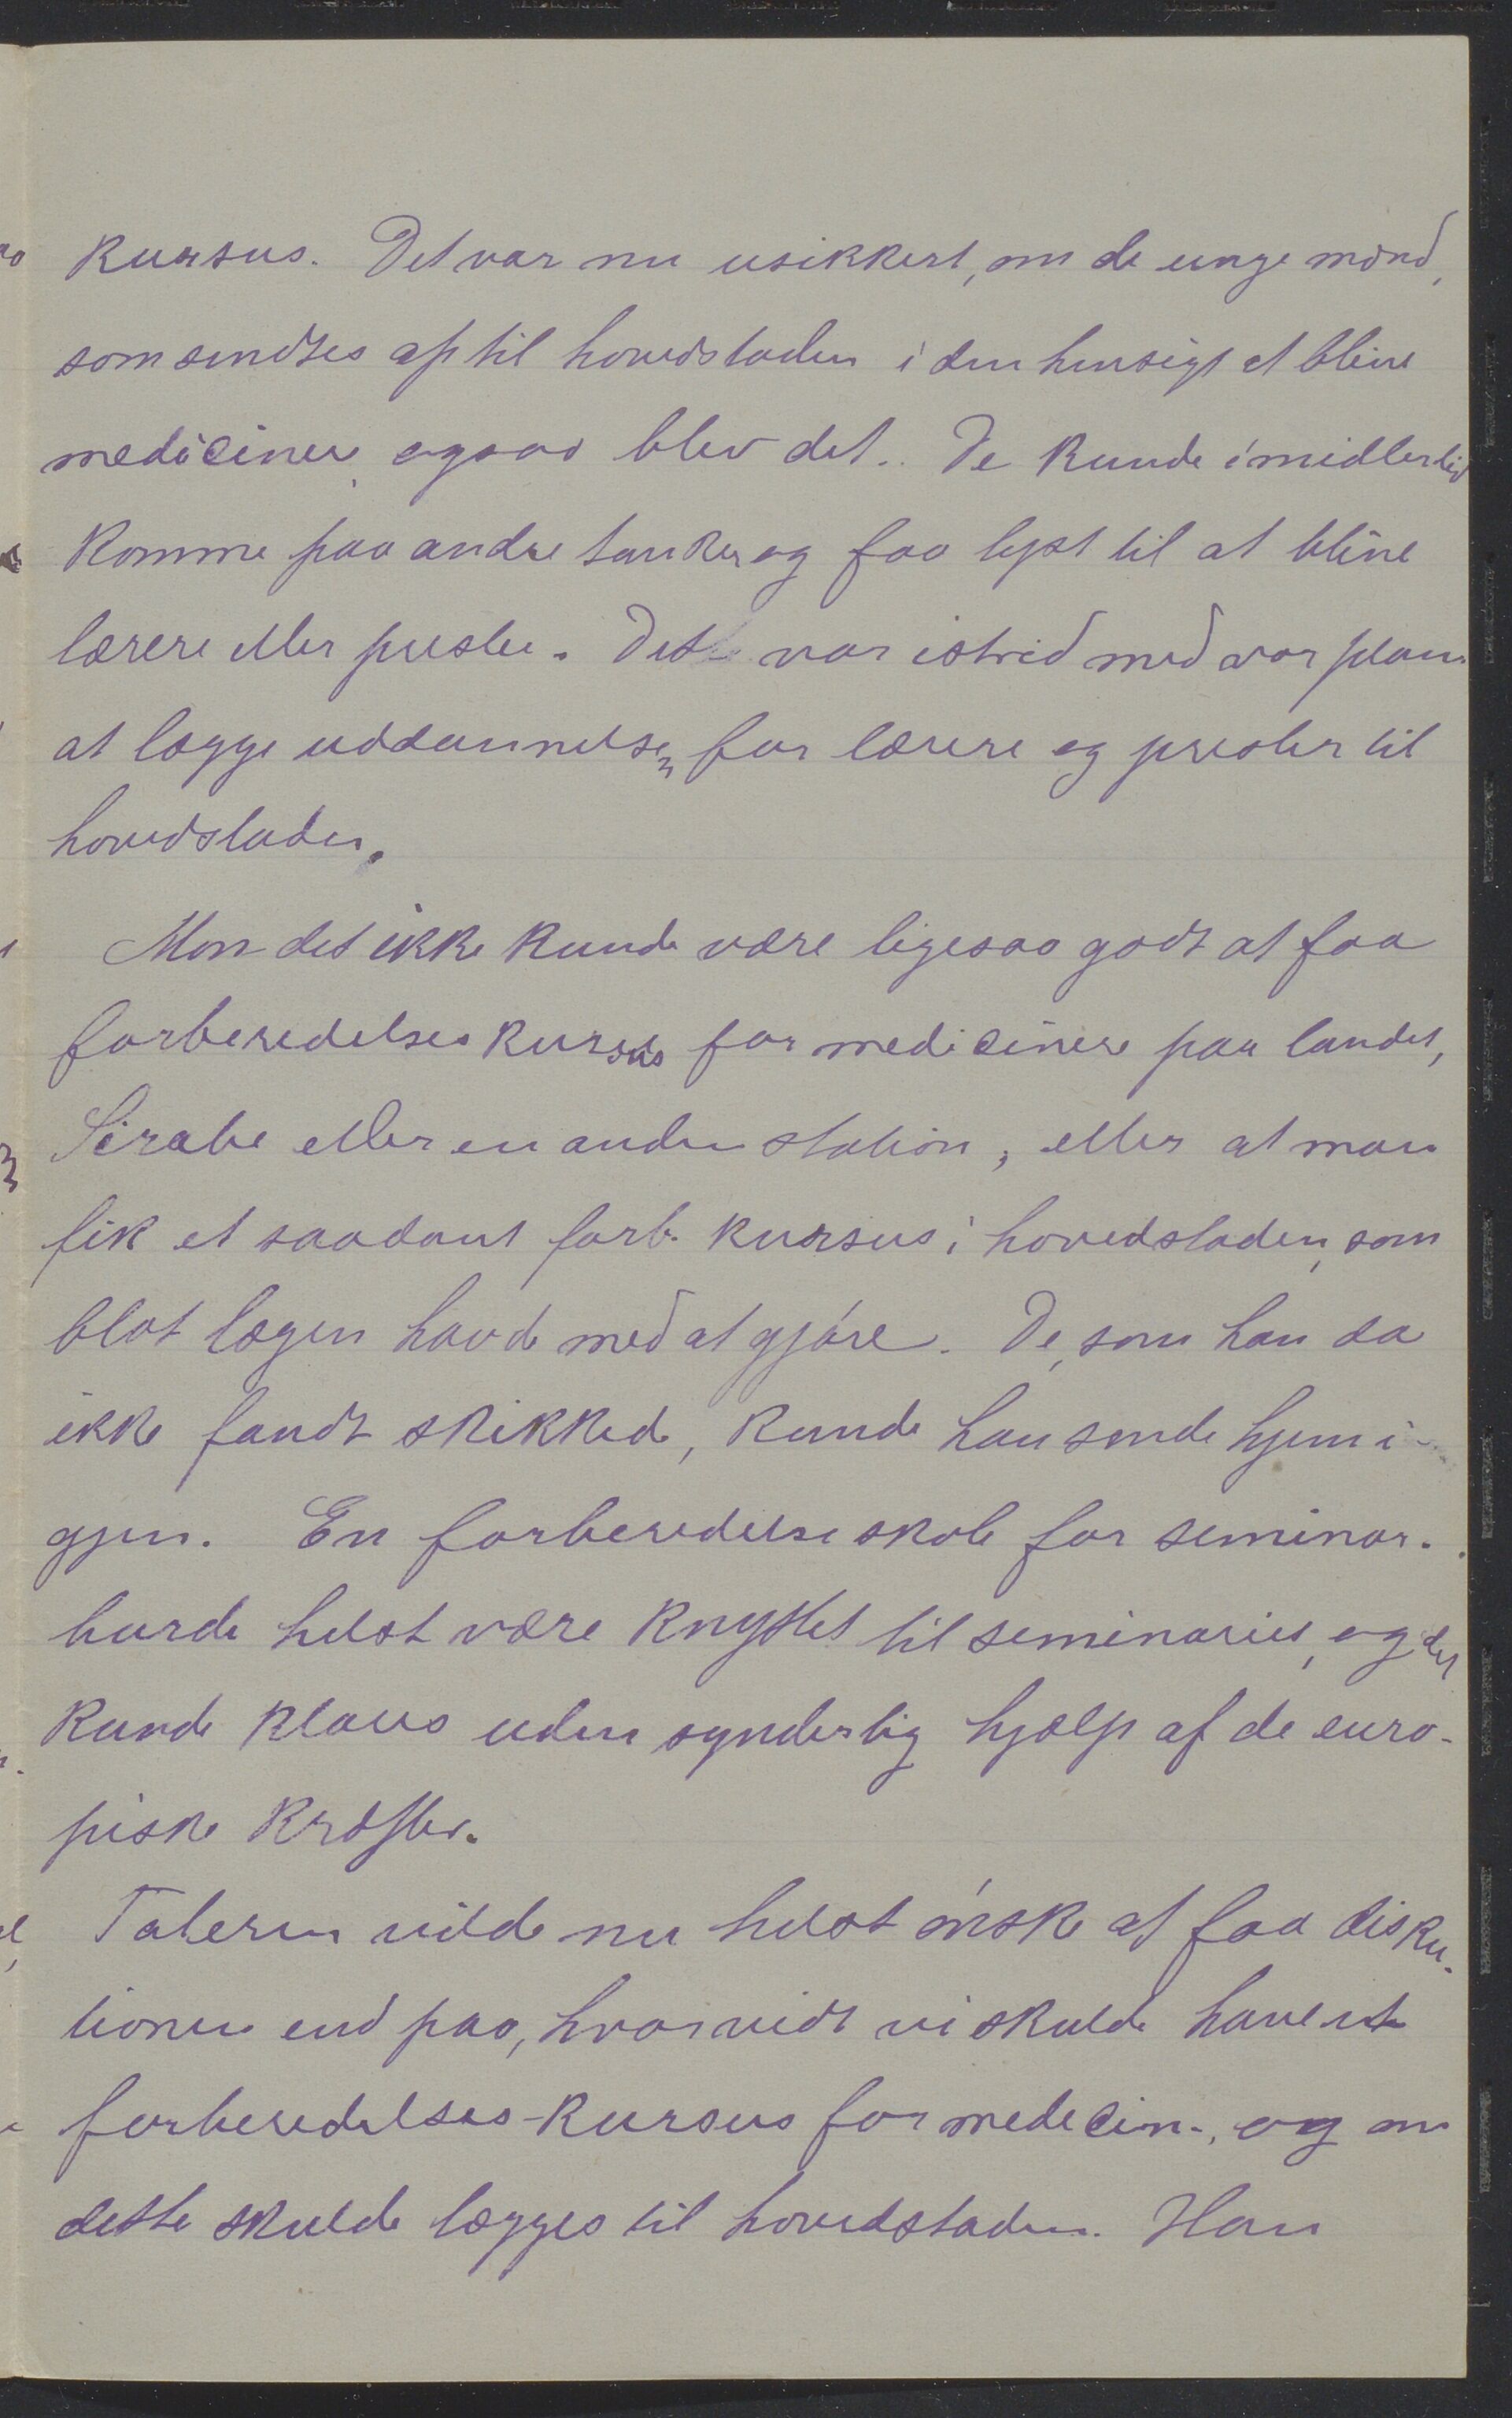 kursus. Det var nu usikkert, om de unge mænd,
som sendtes op til hovedstaden i den hensigt at blive
medicinere, ogsaa blev det. De kunde imidlertid
komme paa andre tanker og faa lyst til at blive
lærere eller prester. Det var istrid med vor plan
at lægge uddannelsen for lærere og prester til
hovedstaden.
Mon det ikke kunde være ligesaa godt at faa
forberedelses kursus for medicinere paa landet,
Sirabe eller en anden station, eller at man
fik et saadant forb. kursus i hovedstaden, som
blot lægen havde med at gjøre. De, som han da
ikke fandt skikkede, kunde han sende hjem i-
gjen. En forberedelsesskole for seminar.
burde helst være knyttet til seminariet, og det
kunde klares uden synderlig hjælp af de euro-
piske kræfter.
Taleren vilde nu helst ønske at faa disku-
tionen ind paa, hvorvidt vi skulde have et
forberedelses-kursus for medicin., og om
dette skulde lægges til hovedstaden. Han